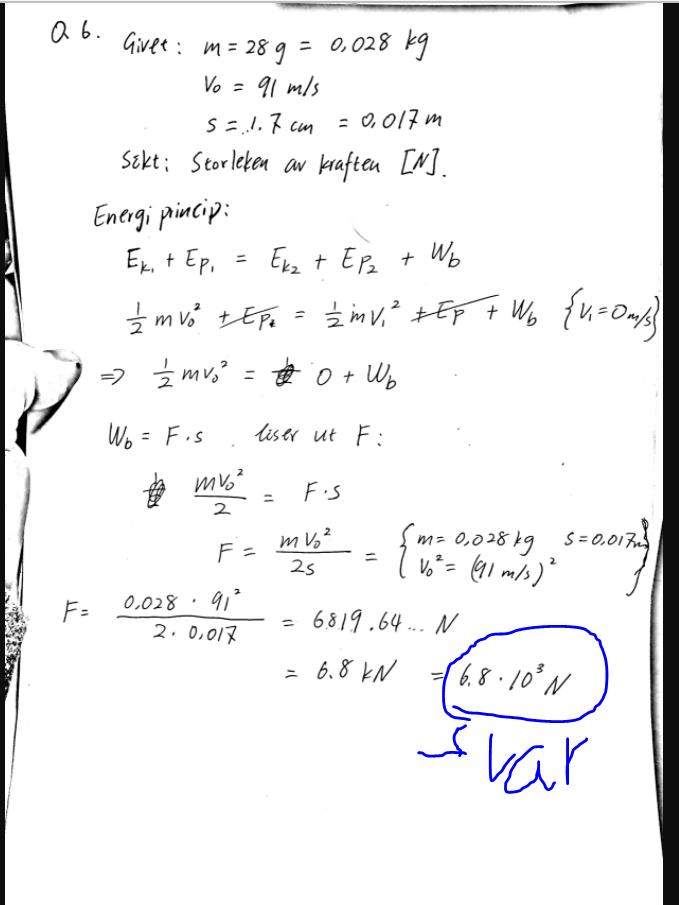 Q 6. Givet : m = 28 g = 0,028 kg
V₀ = 91 m/s
s = 1.7 cm = 0,017 m
Sökt : Storleken av kraften [N].
Energi princip :
Eₖ₁ + Eₚ₁ = Eₖ₂ + Eₚ₂ + W_b
½ m v₀² + Eₚ₁ = ½ m v₁² + Eₚ + W_b {V₁ = 0 m/s}
⇒ ½ m v₀² = 0 + W_b
W_b = F · s . liser ut F :
mV₀²/2 = F · s
F = mV₀²/2s = { m = 0,028 kg s = 0,017 m
V₀² = (91 m/s)² }
F = 0,028 · 91²/2 · 0,017 = 6819.64... N
= 6.8 kN = 6.8 · 10³ N
svar